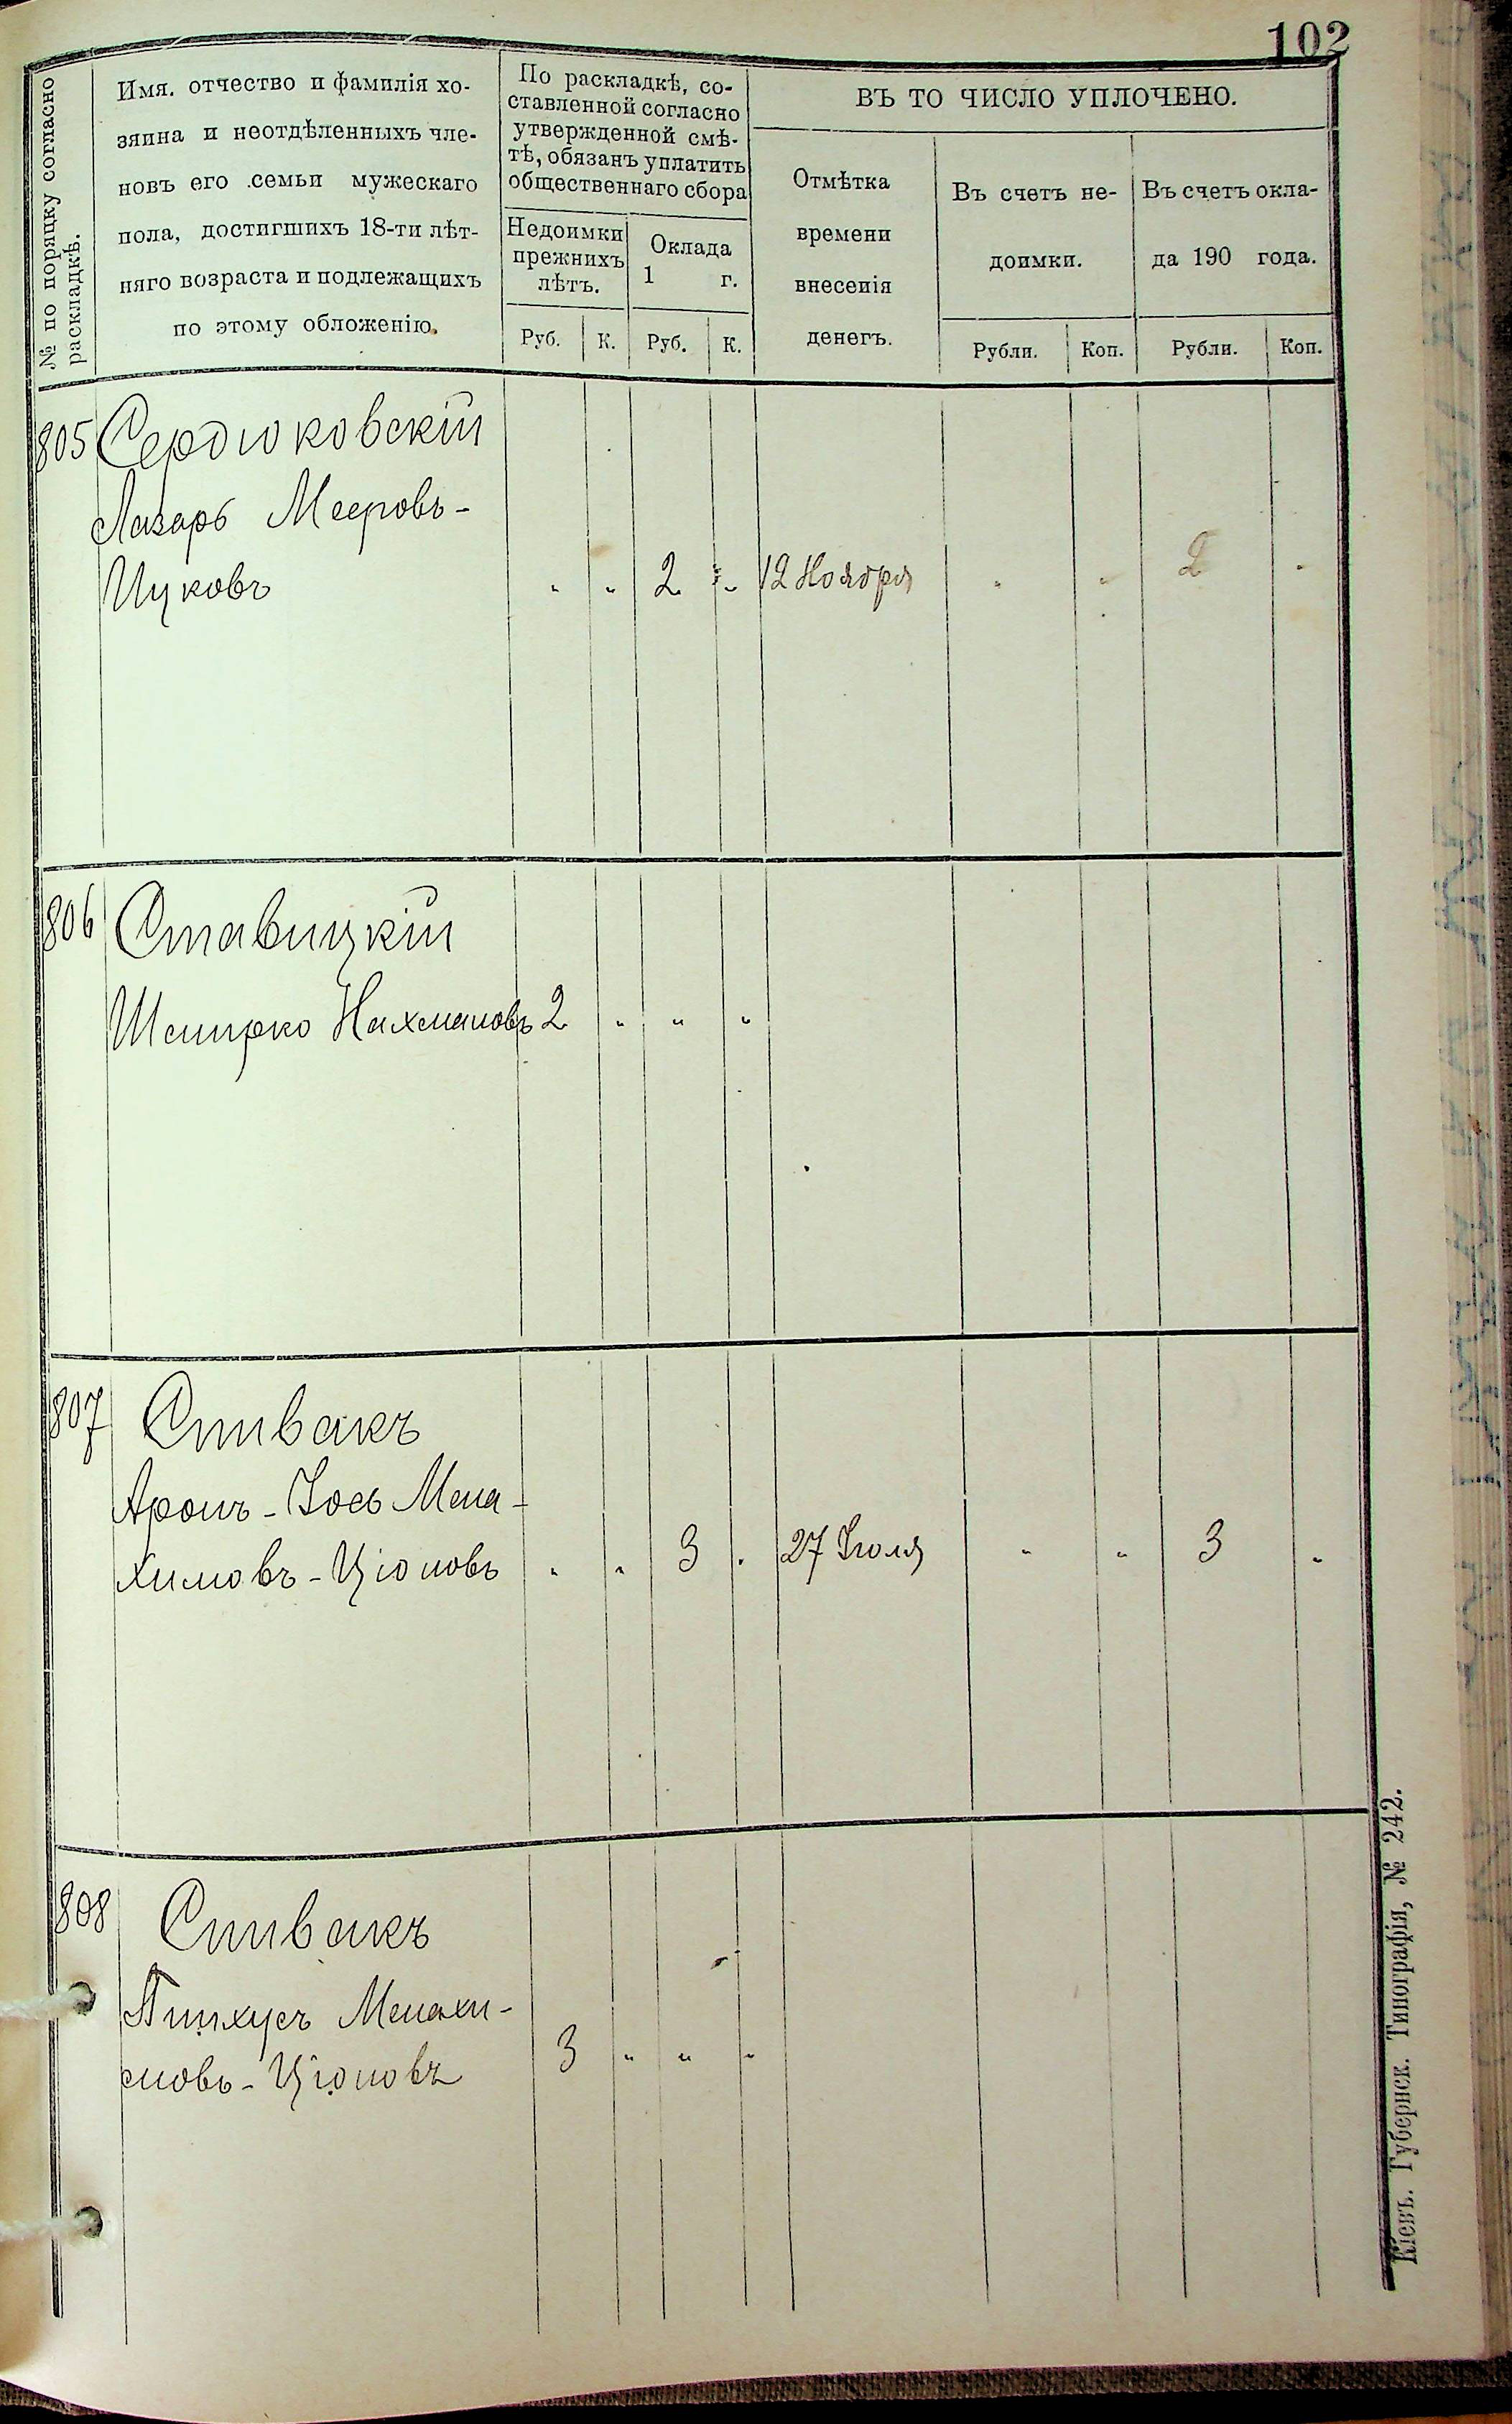 102
№ по порядку согласно
раскладкѣ.
Имя. отчество и фамилія хо-
зяина и неотдѣленныхъ чле-
новъ его семьи мужескаго
пола, достигшихъ 18-ти лѣт-
няго возраста и подлежащихъ
по этому обложенію.
По раскладкѣ, со-
ставленной согласно
утвержденной смѣ-
тѣ, обязанъ уплатить
общественнаго сбора
Недоимки
прежнихъ
лѣтъ.
Оклада
1 г.
Руб. К. Руб. К.
ВЪ ТО ЧИСЛО УПЛОЧЕНО.
Отмѣтка
времени
внесенія
денегъ.
Въ счетъ не-
доимки.
Рубли. Коп.
Въ счетъ окла-
да 190 года.
Рубли. Коп.
805 Сердюковскій
Лазарь Мееровъ-
Ицковъ " " 2 " 12 Ноября " " 2 "
806 Ставицкій
Шмирко Нахмановъ 2 " " "
807 Спивакъ
Аронъ-Іось Мена-
химовъ-Ціоновъ " " 3 " 27 Іюля " " 3 "
808 Спивакъ
Пинхусъ Менахи-
мовъ-Ціоновъ 3 " " "
Кіевъ. Губернск. Типографія, № 242.